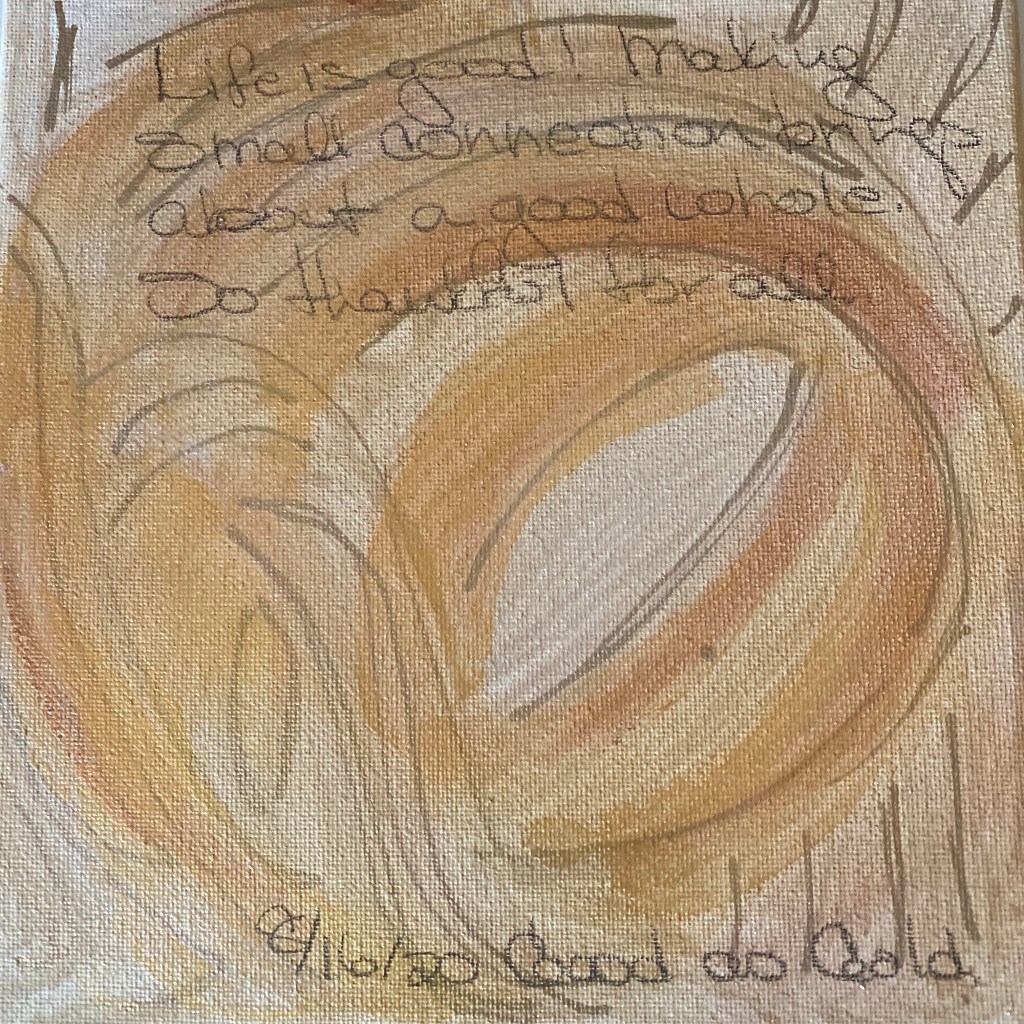 Life is good! Making
Small connection brings
about a good whole.
So thankful for all
9/16/20 Good as Gold